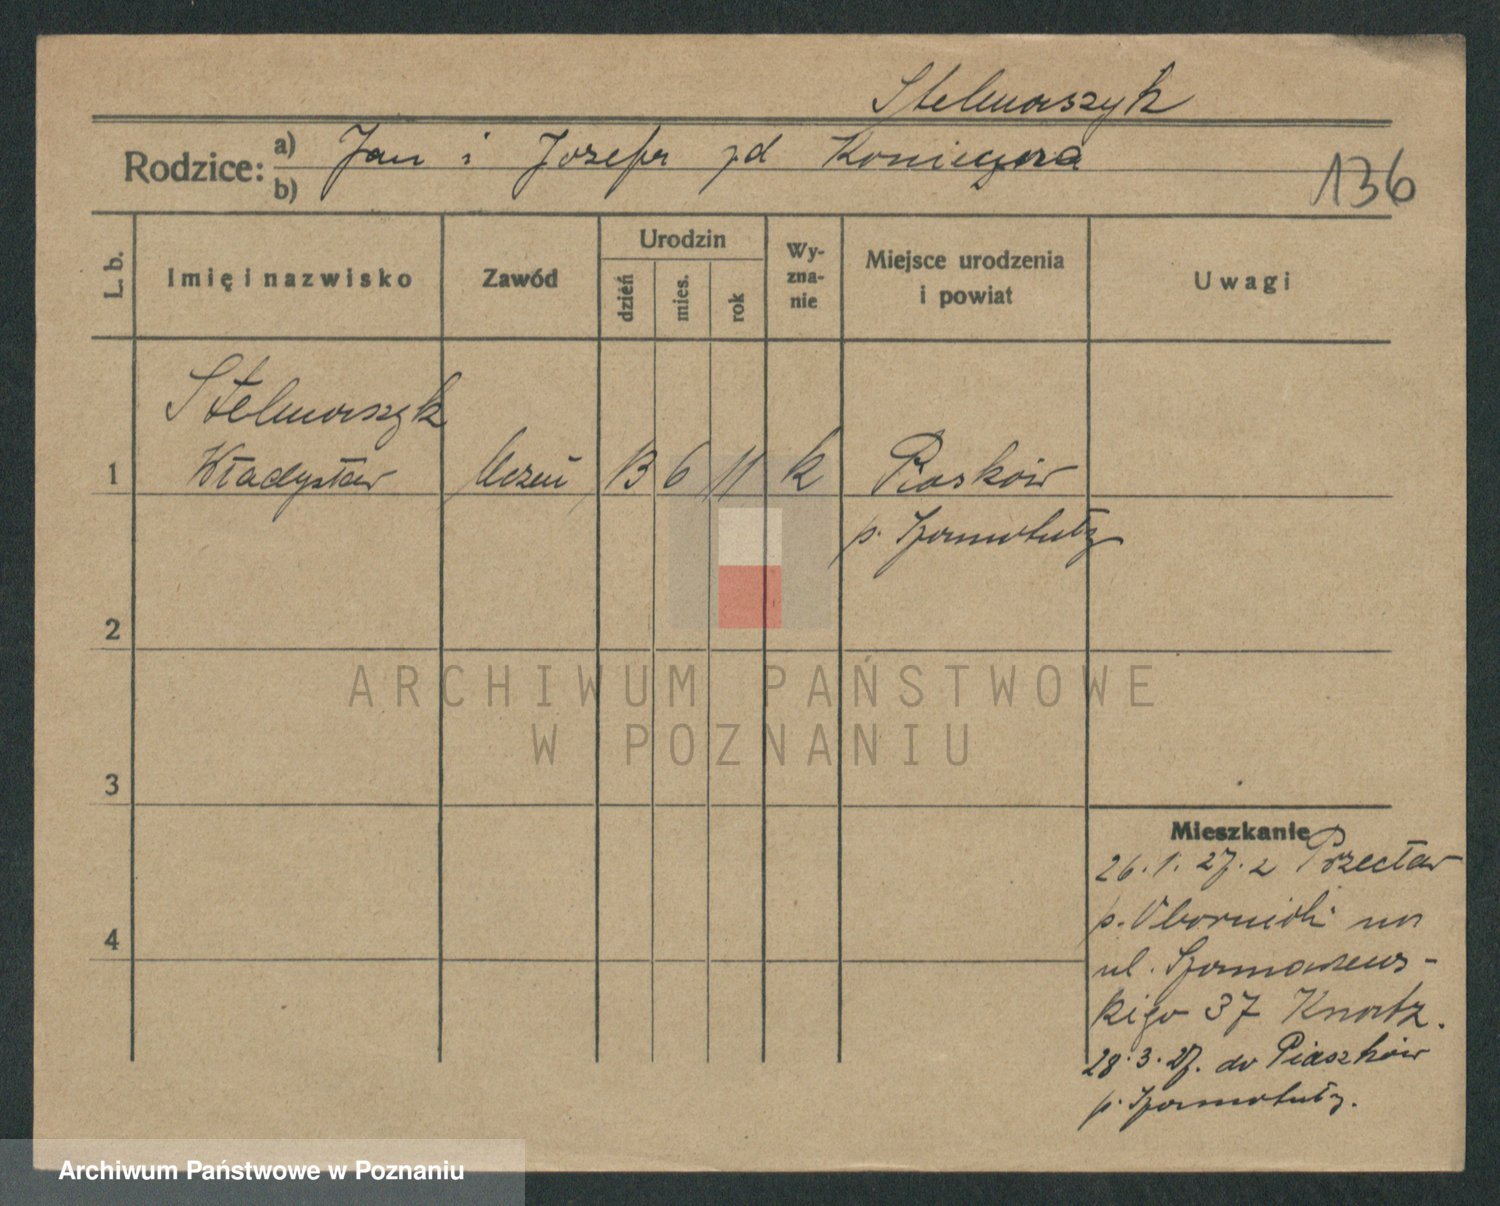 Stelmaszyk
Rodzice: a) Jan i Józefa zd Konieczna
b)
136
L. b.
Imię i nazwisko
Zawód
Urodzin
dzień
mies.
rok
Wy-
zna-
nie
Miejsce urodzenia
i powiat
Uwagi
Stelmaszyk
1 Władysław Uczeń 13 6 11 k Piasków
p. Szamotuły
2
3
4
Mieszkanie
26.1.27. z Przecław
p. Oborniki na
ul. Szamarzews-
kiego 37 Knartz.
28.3.27. do Piaszków
p. Szamotuły.
ARCHIWUM PAŃSTWOWE
W POZNANIU
Archiwum Państwowe w Poznaniu